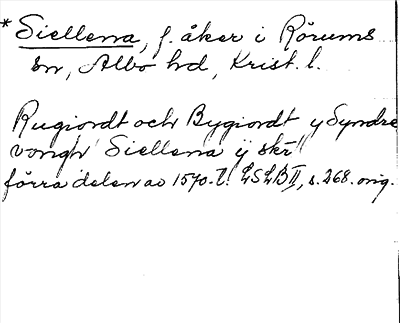 * Siellena, f. åker i Rörums
sn, Albo hd, Krist. l.
Rugiordt och Bygiordt y Syndre
vongh "Siellena ij skr"
förra delen av 1570-t. LSLB II, s. 268. orig.